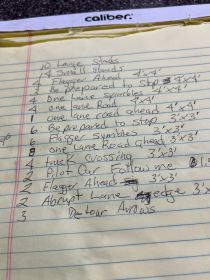 caliber.
10 Large Stands
14 Small Stands
4 Flagger Ahead 4'x4'
4 Be prepared to Stop 4'x4'
4 One Lane Symbles 4'x4'
4 one lane Road 4'x4'
1 one lane road ahead 4'x4'
6 Be prepared to stop 3'x3'
6 Flagger symbles 3'x3'
8 one Lane Road ahead 3'x3'
4 truck crossing 3'x3'
2 Pilot Car Follow me
2 Flagger Ahead 3'x3'
2 Abrupt Lane edge 3'x
3 Detour Arrows